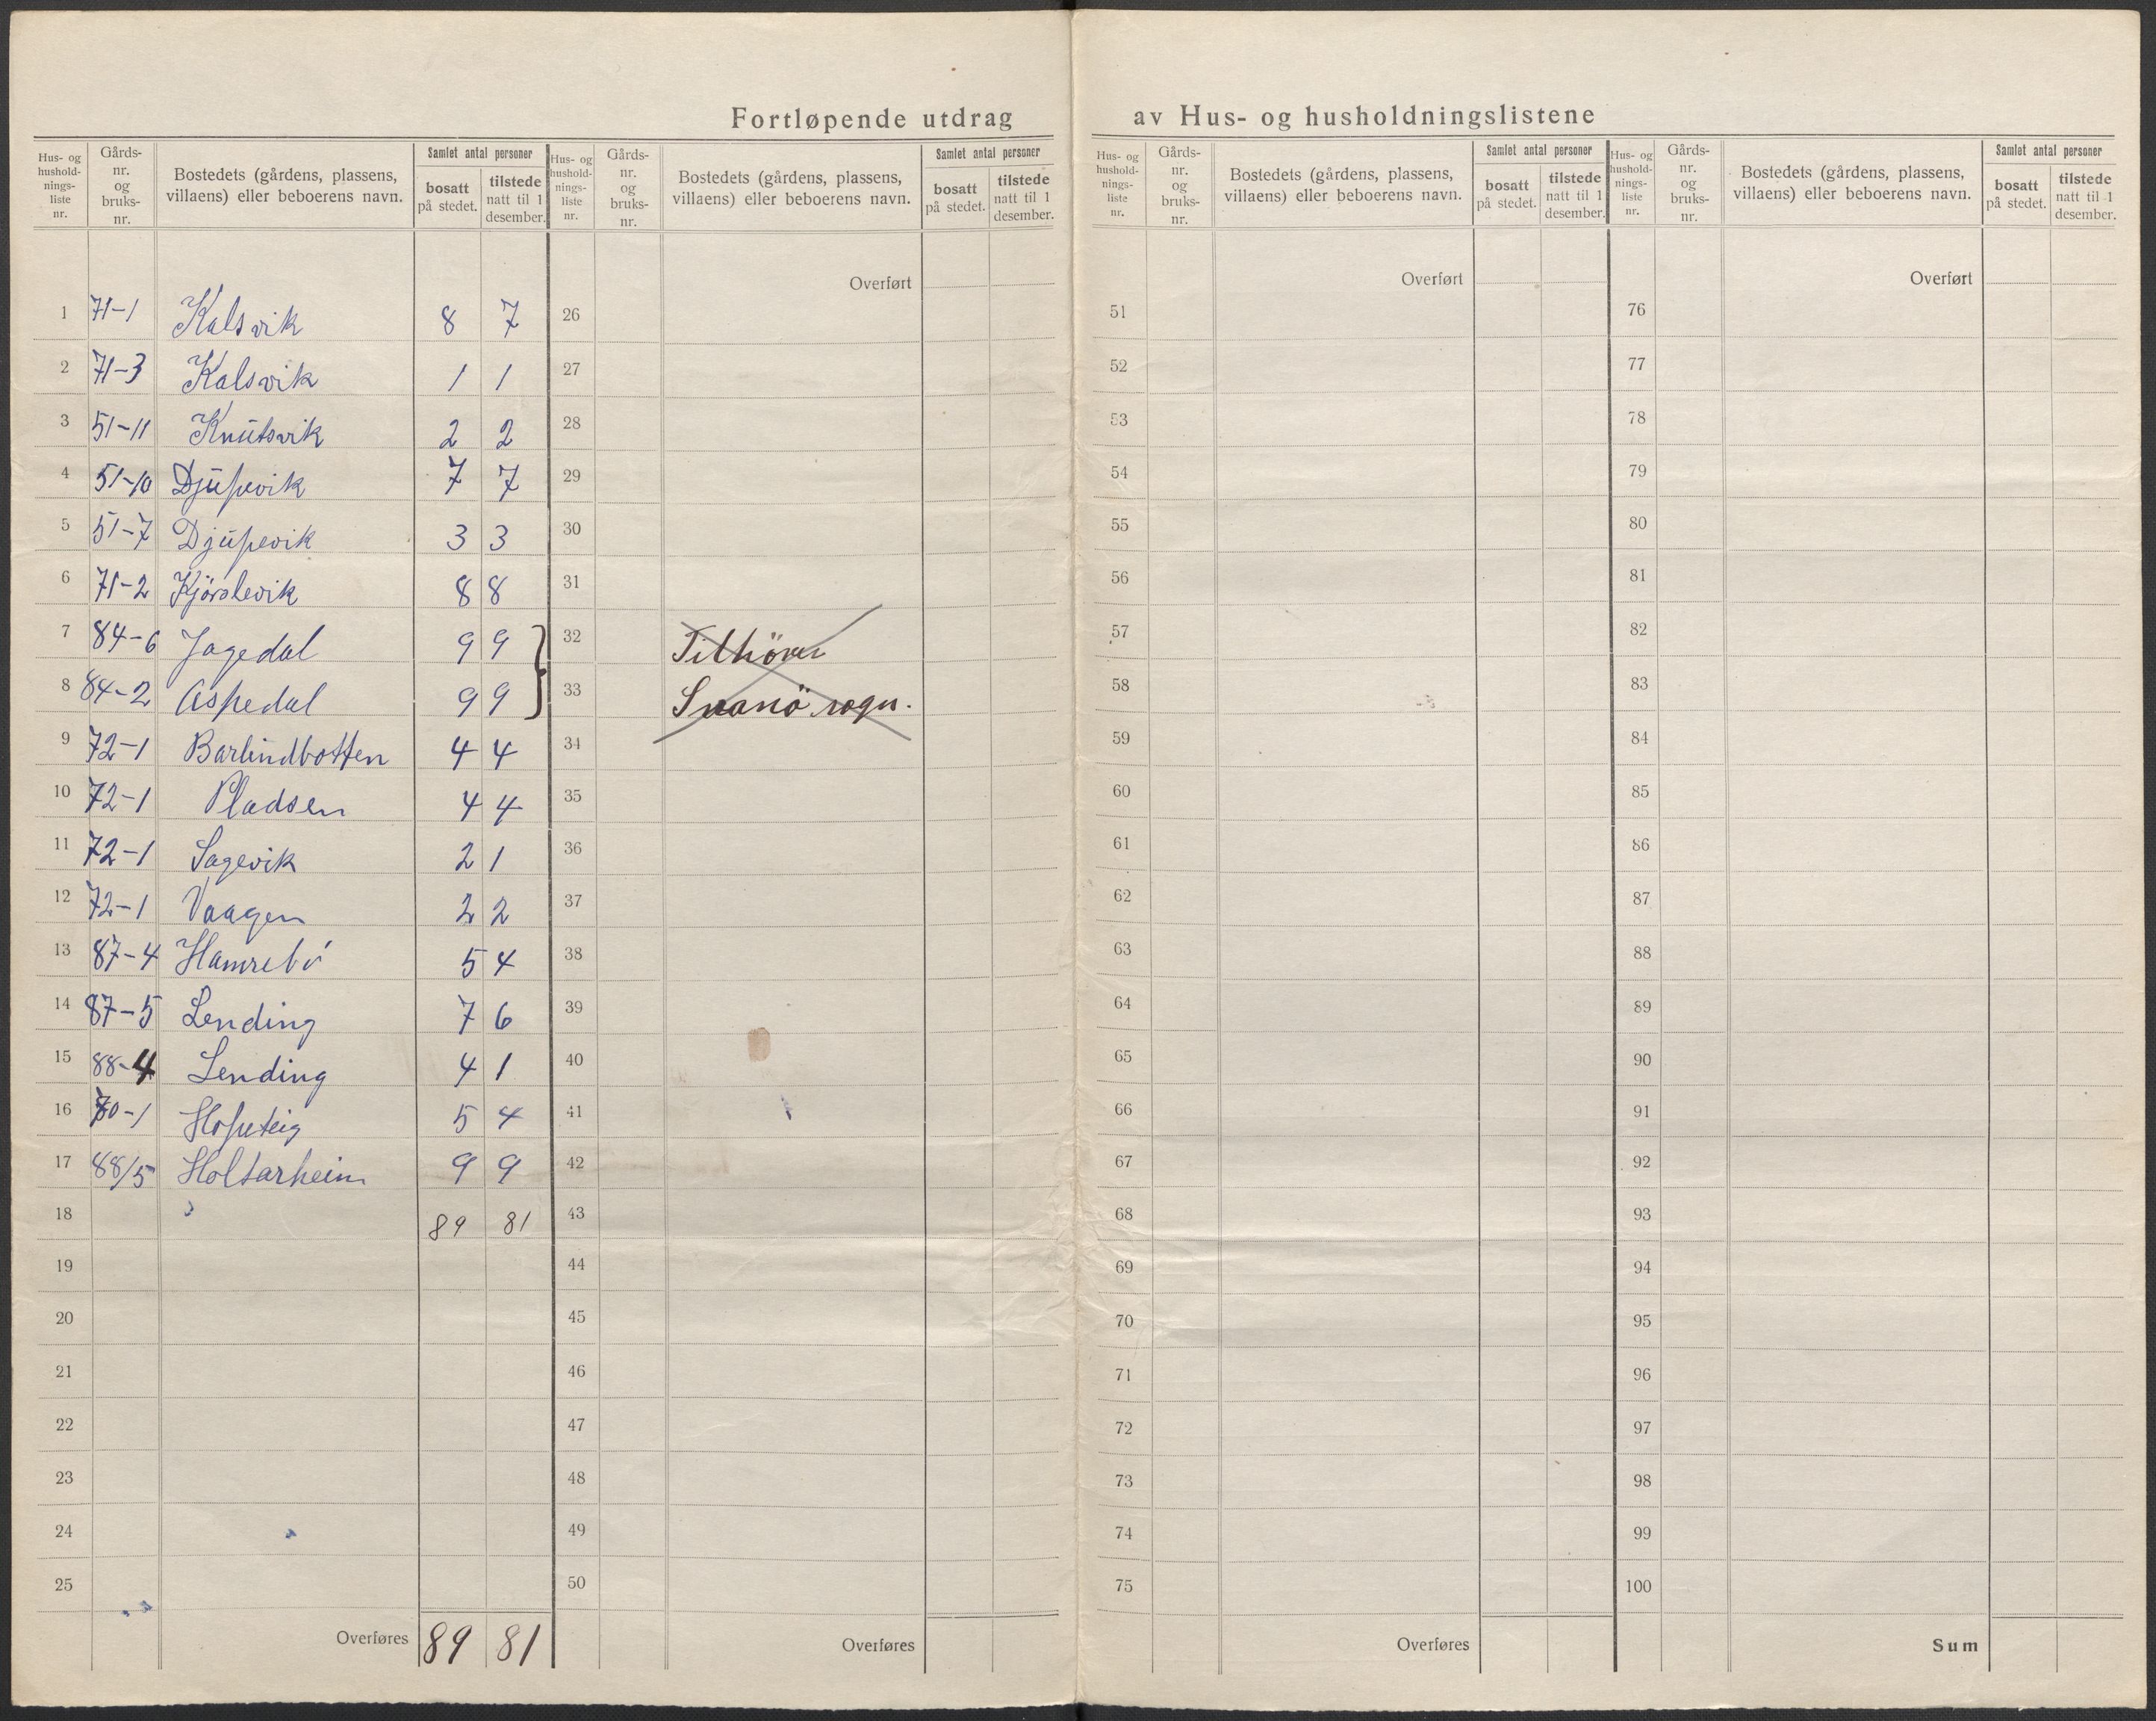 Fortløpende utdrag av Hus- og husholdningslistene
Hus- og hushold- nings- liste nr. Gårds- nr. og bruks- nr. Bostedets (gårdens, plassens, villaens) eller beboerens navn. Samlet antal personer bosatt på stedet. tilstede natt til 1 desember.
Hus- og hushold- nings- liste nr. Gårds- nr. og bruks- nr. Bostedets (gårdens, plassens, villaens) eller beboerens navn. Samlet antal personer bosatt på stedet. tilstede natt til 1 desember.
Hus- og hushold- nings- liste nr. Gårds- nr. og bruks- nr. Bostedets (gårdens, plassens, villaens) eller beboerens navn. Samlet antal personer bosatt på stedet. tilstede natt til 1 desember.
Hus- og hushold- nings- liste nr. Gårds- nr. og bruks- nr. Bostedets (gårdens, plassens, villaens) eller beboerens navn. Samlet antal personer bosatt på stedet. tilstede natt til 1 desember.
1 71-1 Kalsvik 8 7
2 71-3 Kalsvik 1 1
3 51-11 Knutsvik 2 2
4 51-10 Djupevik 7 7
5 51-7 Djupevik 3 3
6 71-2 Kjörslevik 8 8
7 84-6 Jagedal 9 9 }
8 84-2 Aspedal 9 9
9 72-1 Barlindbotten 4 4
10 72-1 Pladsen 4 4
11 72-1 Sagevik 2 1
12 72-1 Vaagen 2 2
13 87-4 Hamrebö 5 4
14 87-5 Lending 7 6
15 88-4 Lending 4 1
16 70-1 Hopsteig 5 4
17 88/5 Holtarheim 9 9
18 89 81
19
20
21
22
23
24
25
Overføres 89 81
Overført
26
27
28
29
30
31
32 Tilhörer
33 Svanö sogn.
34
35
36
37
38
39
40
41
42
43
44
45
46
47
48
49
50
Overføres
Overført
51
52
53
54
55
56
57
58
59
60
61
62
63
64
65
66
67
68
69
70
71
72
73
74
75
Overføres
Overført
76
77
78
79
80
81
82
83
84
85
86
87
88
89
90
91
92
93
94
95
96
97
98
99
100
Sum